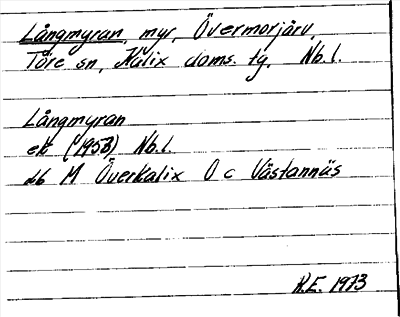 Långmyran, myr, Övermorjärv,
Töre sn, Kalix doms. tg. Nb.l.
Långmyran
ek (1953) Nb.l.
db M Överkalix O c Västannäs
R.E. 1973